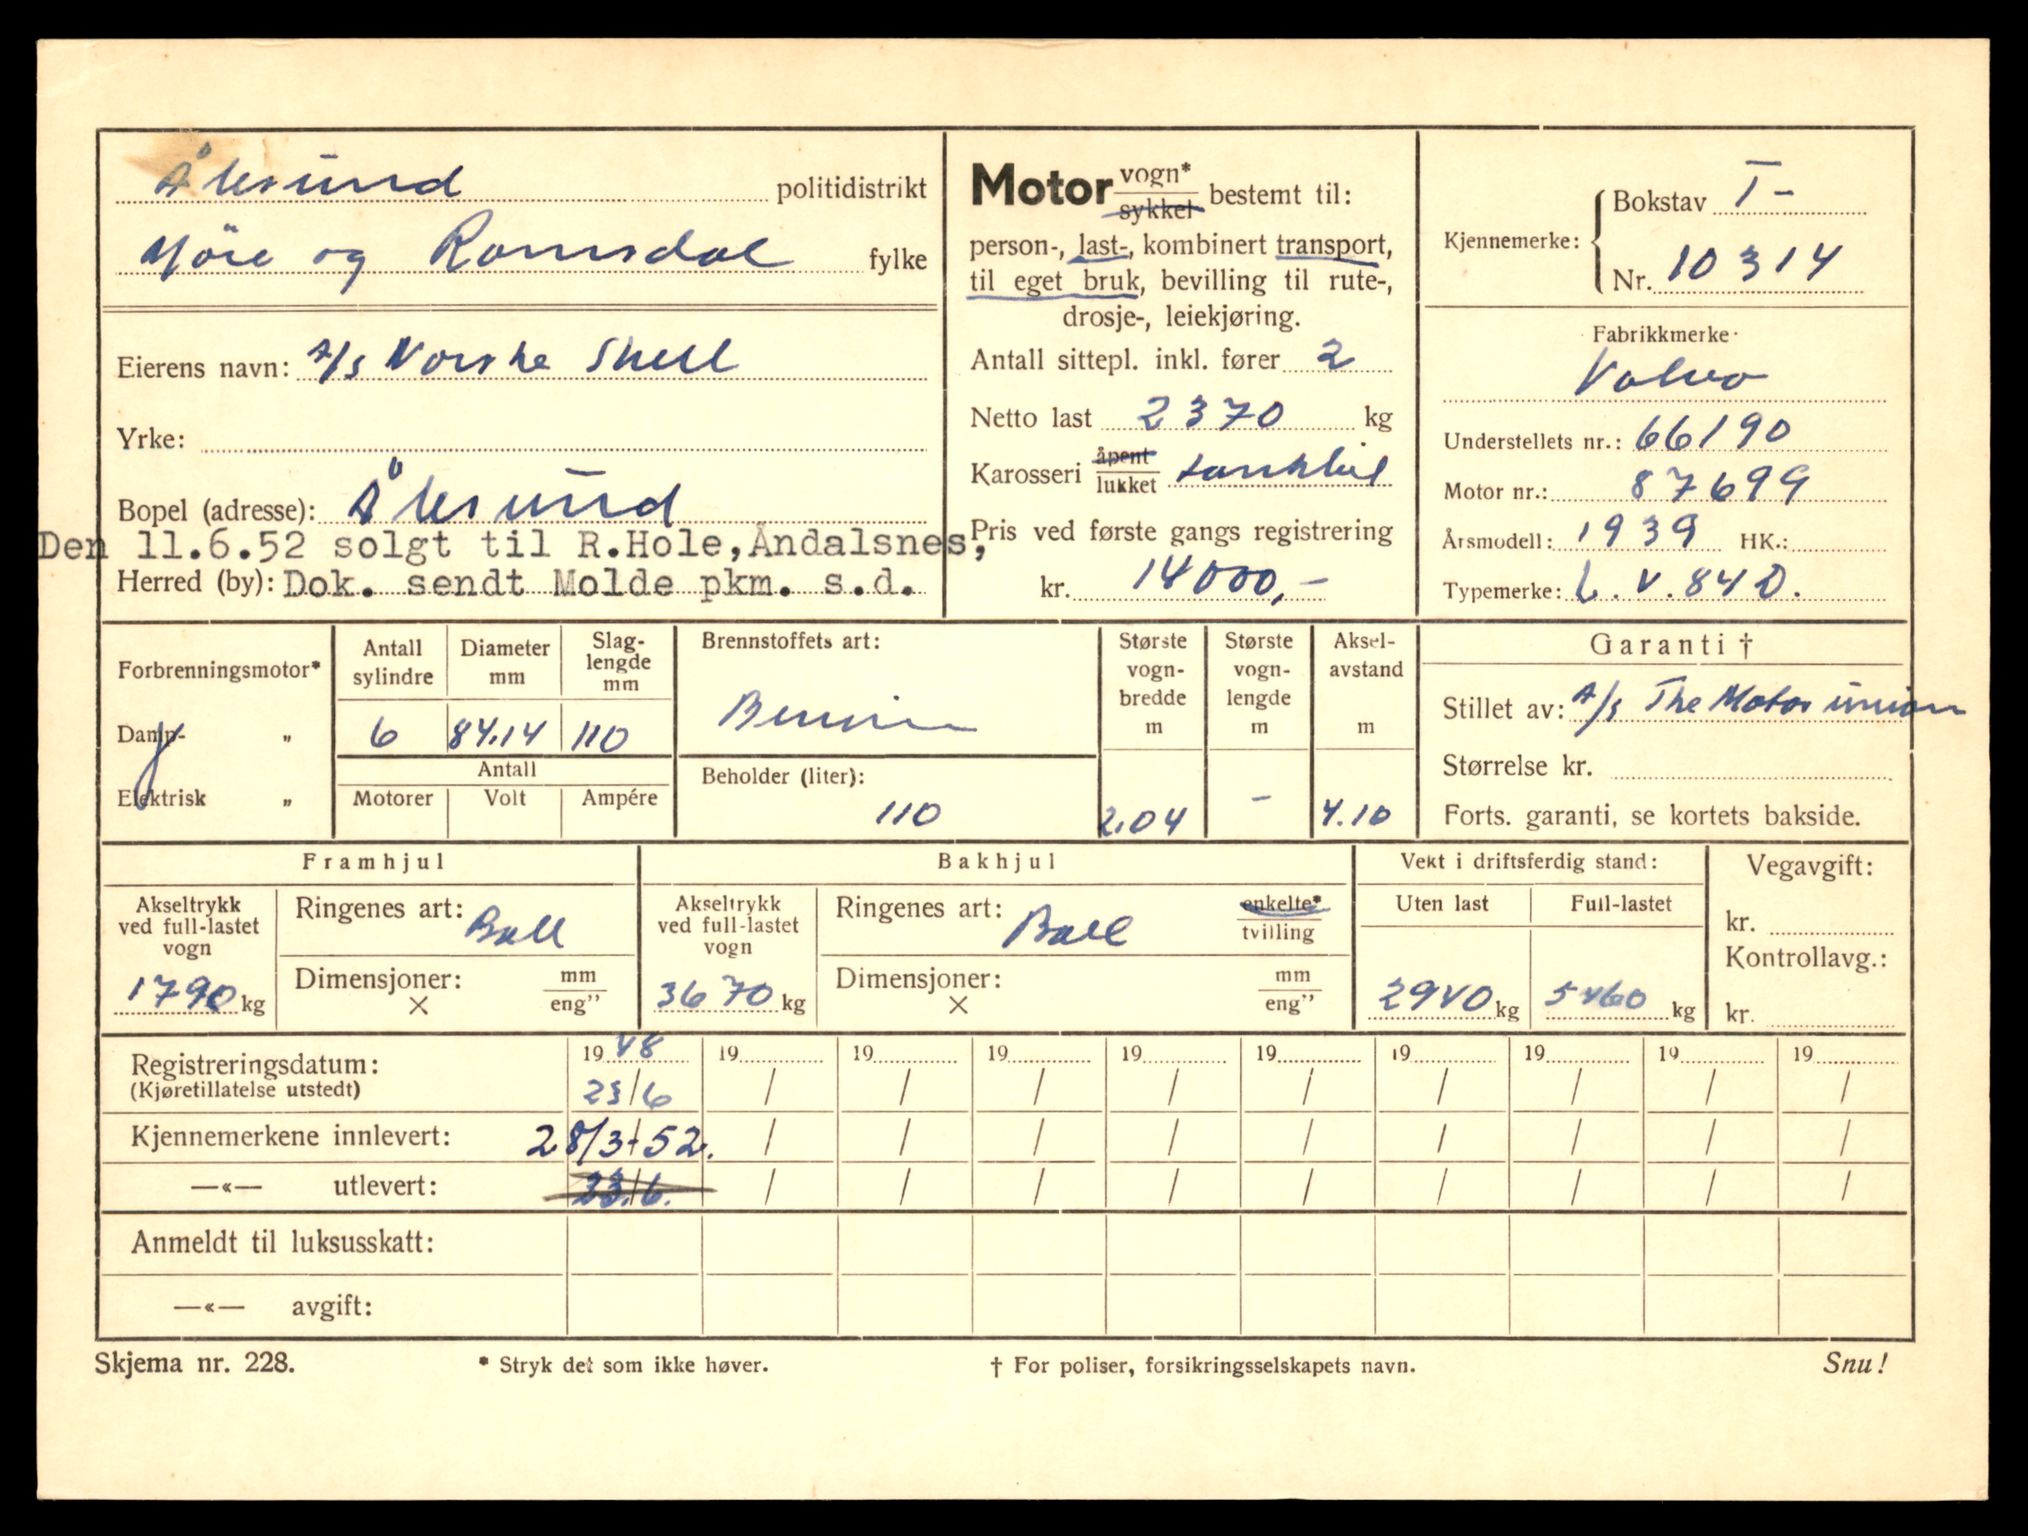 Ålesund politidistrikt
Möre og Romsdal fylke
Eierens navn: A/s Norske Shell
Yrke:
Bopel (adresse): Ålesund
Den 11.6.52 solgt til R.Hole,Åndalsnes,
Herred (by): Dok. sendt Molde pkm. s.d.
Motor vogn* sykkel bestemt til:
person-, last-, kombinert transport,
til eget bruk, bevilling til rute-,
drosje-, leiekjøring.
Antall sittepl. inkl. fører 2
Netto last 2370 kg
Karosseri åpent lukket tankbil
Pris ved første gangs registrering
kr. 14000,-
Kjennemerke: Bokstav T-
Nr. 10314
Fabrikkmerke
Volvo
Understellets nr.: 66190
Motor nr.: 87699
Årsmodell: 1939 HK.:
Typemerke: L.V.84D.
Forbrenningsmotor*
Damp- „
Elektrisk „
Antall sylindre 6
Diameter mm 84.14
Slag-lengde mm 110
Antall
Motorer Volt Ampére
Brennstoffets art:
Bensin
Beholder (liter):
110
Største vogn-bredde m 2.04
Største vogn-lengde m -
Aksel-avstand m 4.10
Garanti †
Stillet av: A/s The Motor union
Størrelse kr.
Forts. garanti, se kortets bakside.
Framhjul
Akseltrykk ved full-lastet vogn 1790 kg
Ringenes art: Ball
Dimensjoner: × mm eng”
Bakhjul
Akseltrykk ved full-lastet vogn 3670 kg
Ringenes art: Ball enkelte* tvilling
Dimensjoner: × mm eng”
Vekt i driftsferdig stand:
Uten last Full-lastet
2940 kg 5460 kg
Vegavgift:
kr.
Kontrollavg.:
kr.
Registreringsdatum: 1948 19 19 19 19 19 19 19 19 19
(Kjøretillatelse utstedt) 23/6 / / / / / / / / /
Kjennemerkene innlevert: 28/3-52. / / / / / / / / /
—«— utlevert: 23/6. / / / / / / / / /
Anmeldt til luksusskatt:
—«— avgift:
Skjema nr. 228. * Stryk det som ikke høver. † For poliser, forsikringsselskapets navn. Snu!